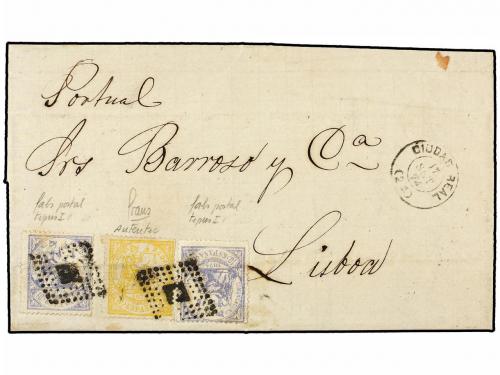 Portugal
Srs Barroso y Ca
Lisboa
CIUDAD REAL
17
(22)
fals postal
tipus I
Franz
Autentic
fals postal
tipus I